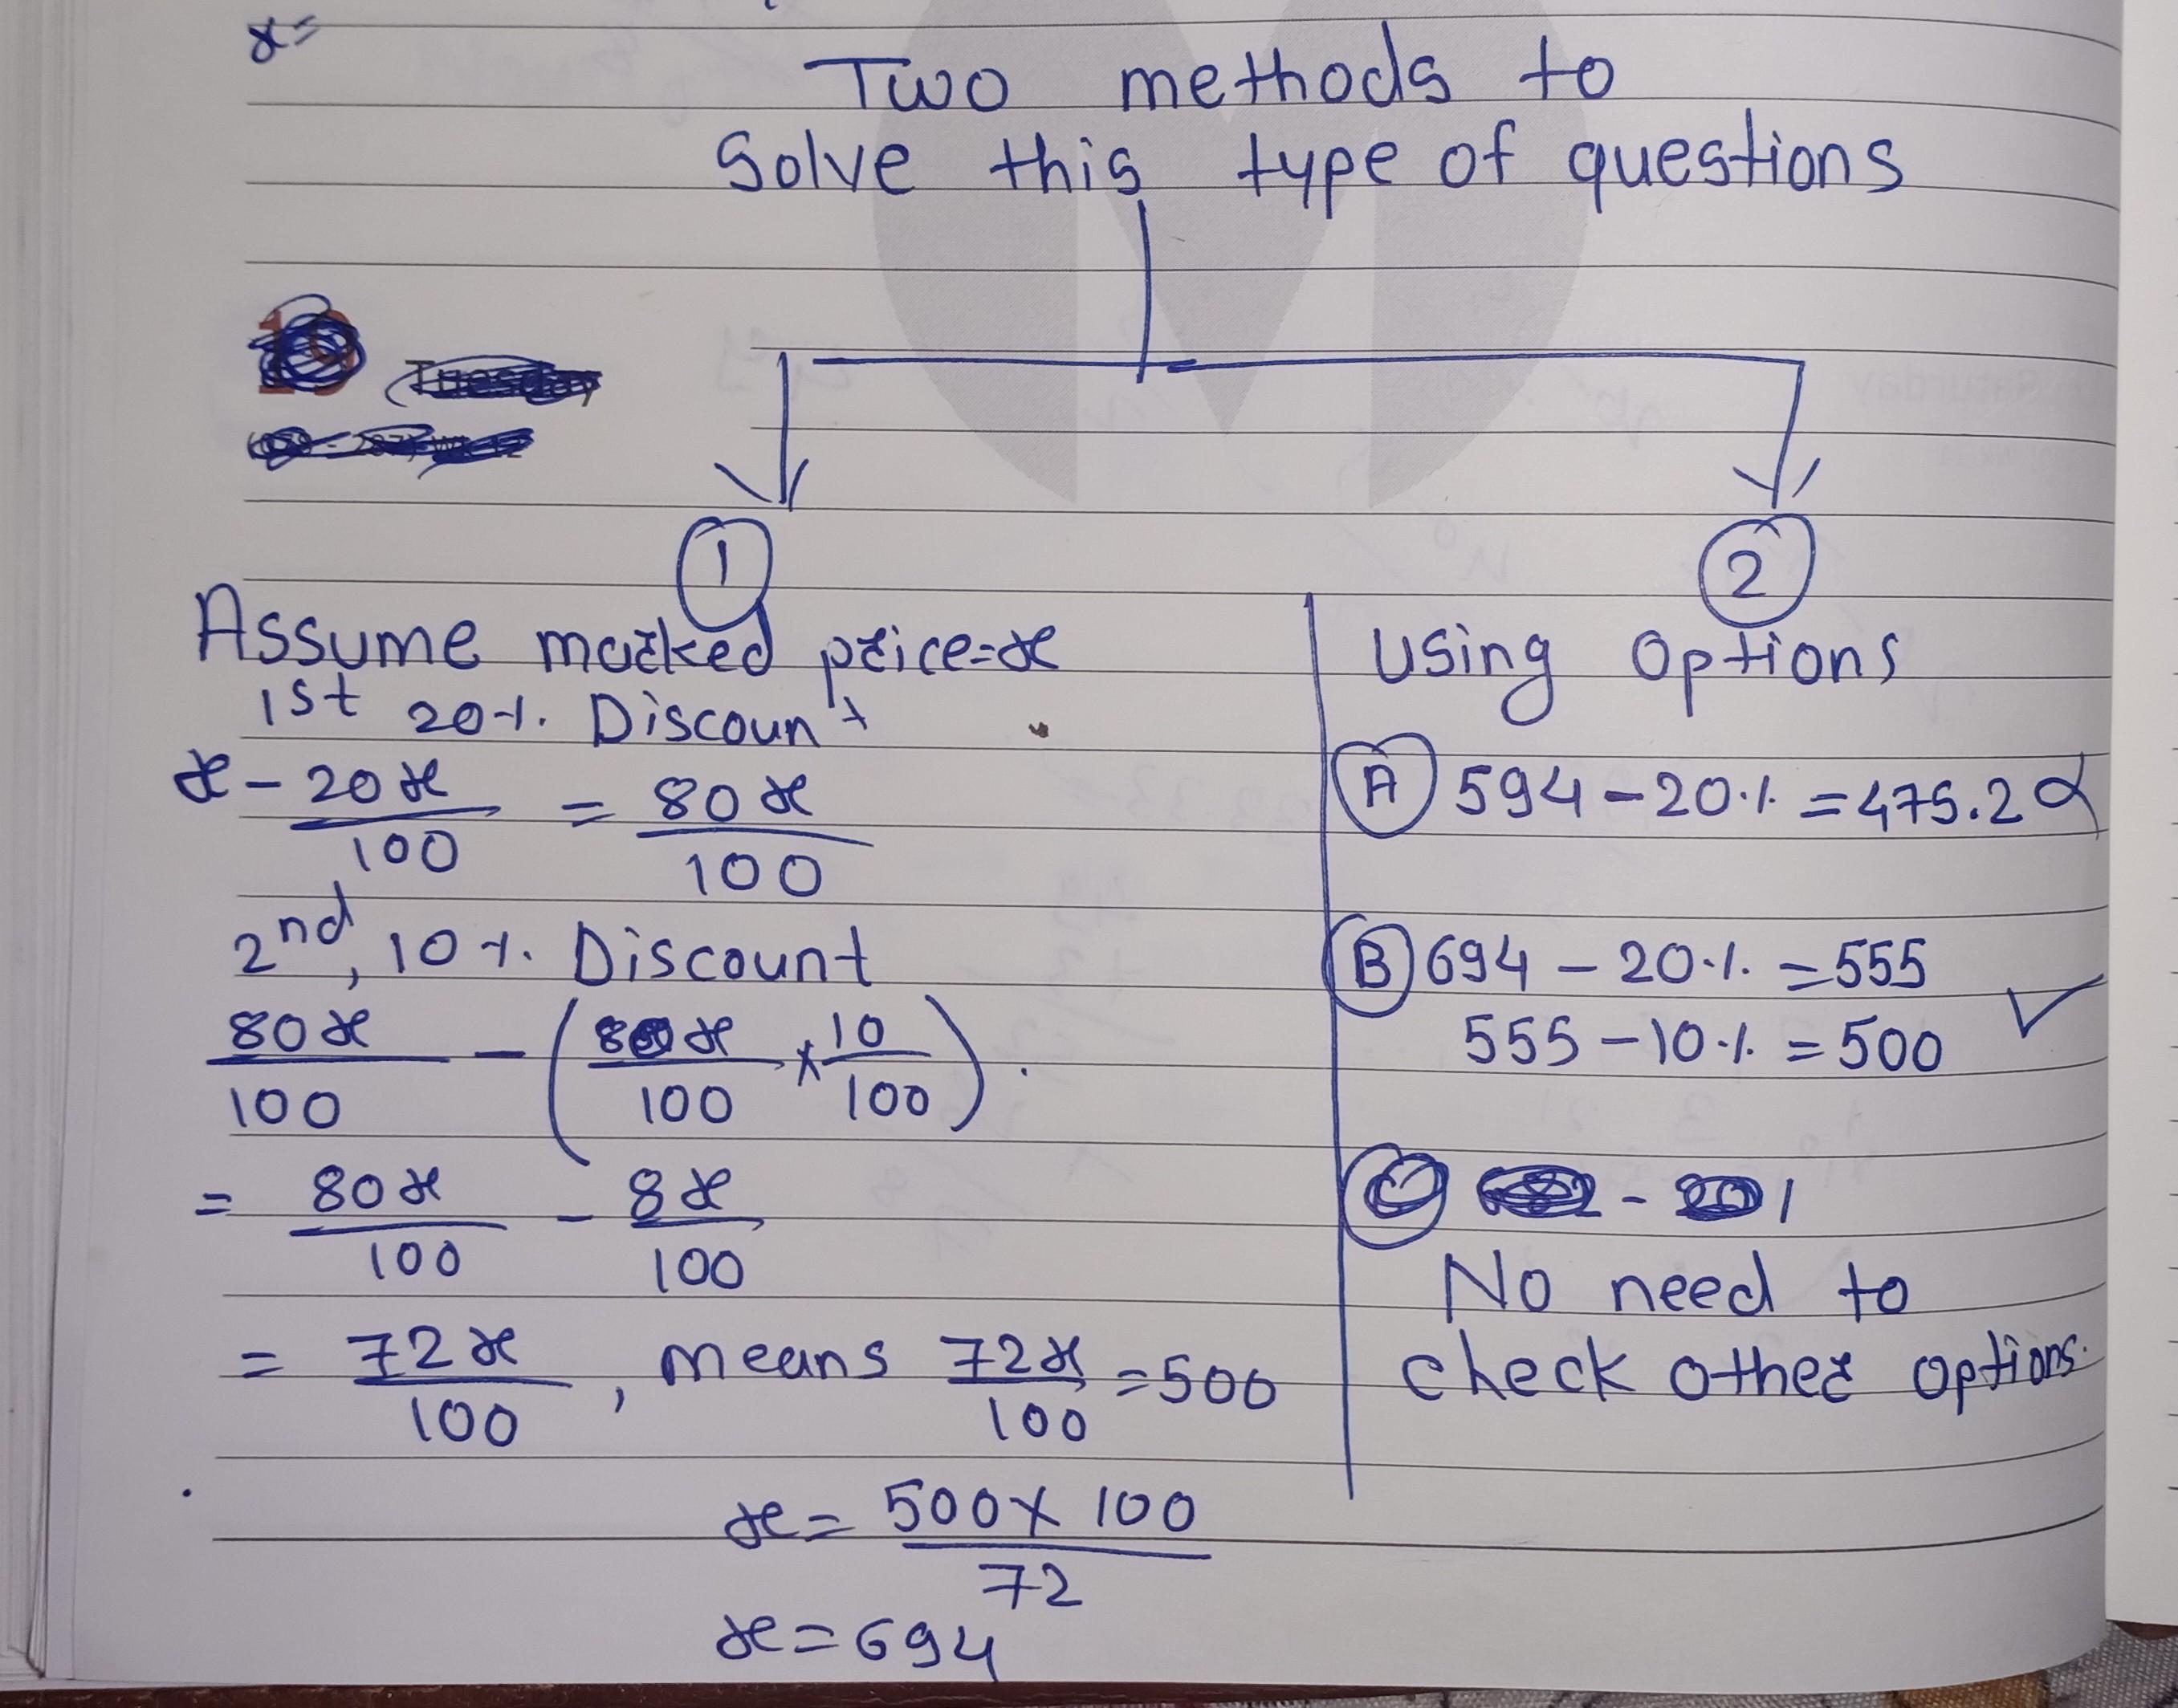 x=
Two methods to
Solve this type of questions
1
Assume marked price=x
1st 20%. Discount
x - 20x/100 = 80x/100
2nd, 10%. Discount
80x/100 - (80x/100 × 10/100).
= 80x/100 - 8x/100
= 72x/100, means 72x/100 = 500
x = 500 × 100/72
x = 694
2
Using Options
A 594 - 20% = 475.2
B 694 - 20% = 555
555 - 10% = 500 ✓
C
No need to
check other options.